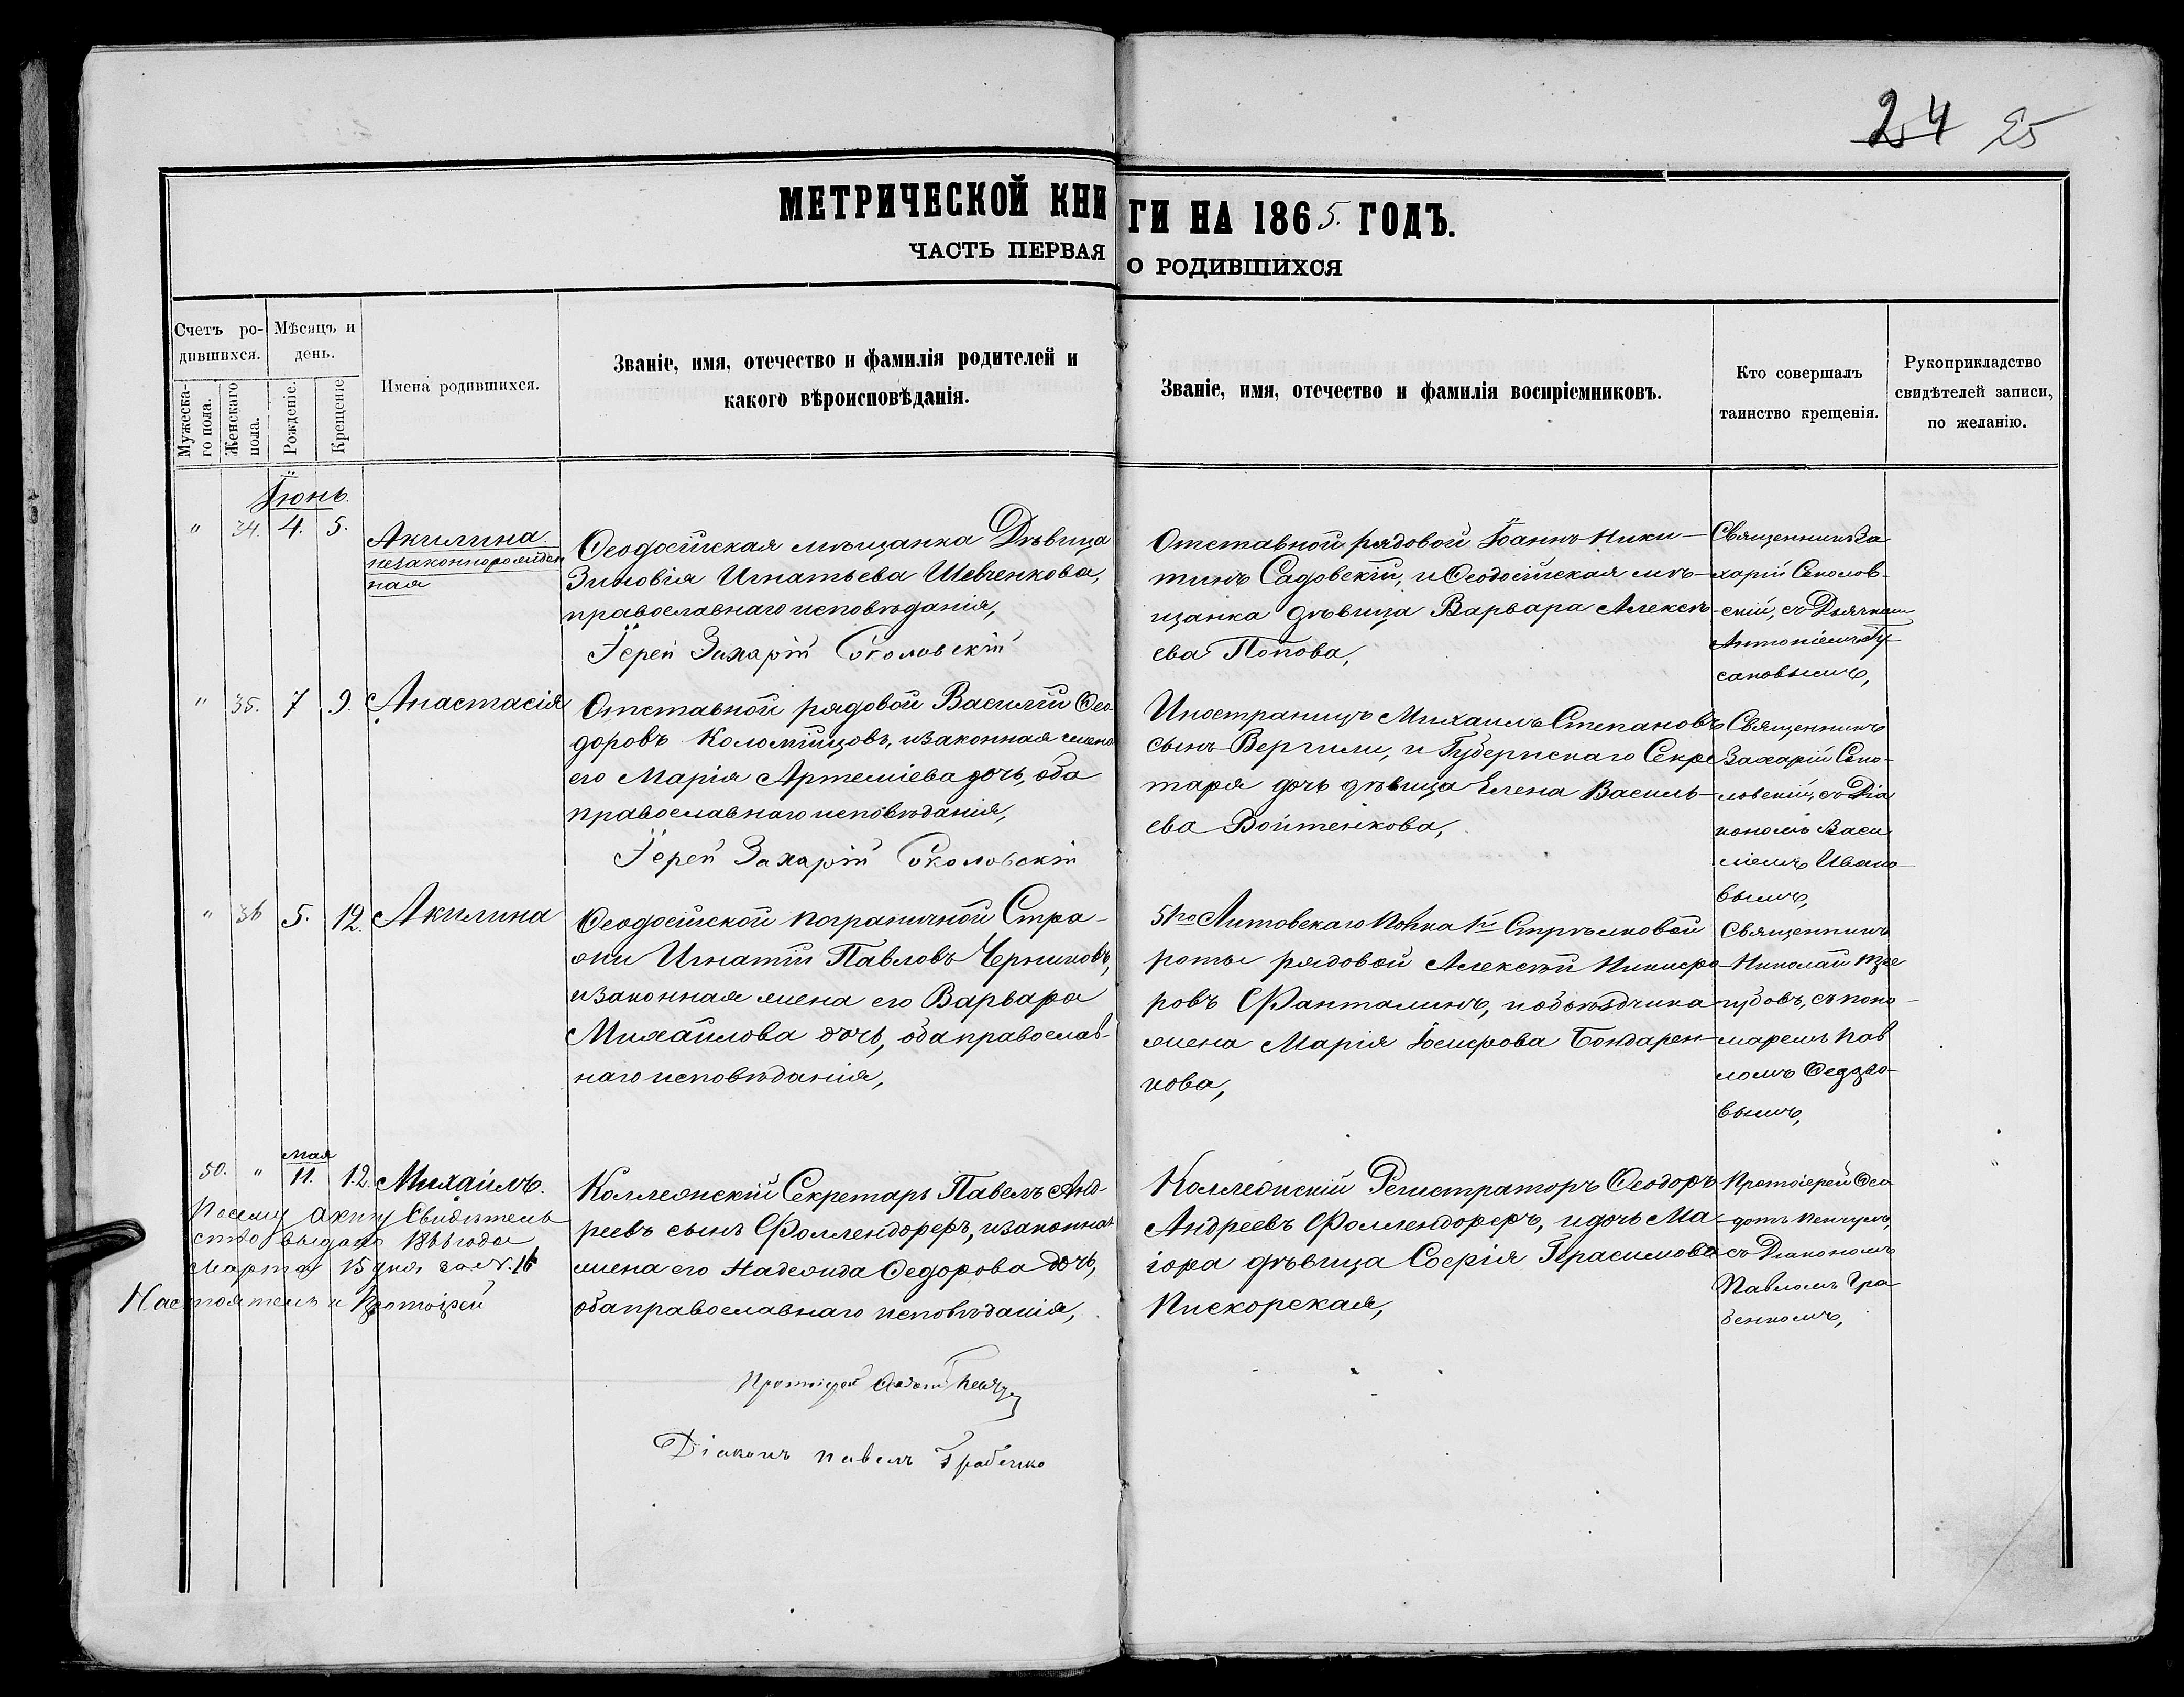 24 25
МЕТРИЧЕСКОЙ КНИГИ НА 1865. ГОДЪ.
ЧАСТЬ ПЕРВАЯ О РОДИВШИХСЯ
Счетъ ро-
дившихся.
Мужеска-
го пола.
Женскаго
пола.
Мѣсяцъ и
день.
Рожденіе.
Крещеніе
Имена родившихся.
Званіе, имя, отечество и фамилія родителей и
какого вѣроисповѣданія.
Званіе, имя, отечество и фамилія воспріемниковъ.
Кто совершалъ
таинство крещенія.
Рукоприкладство
свидѣтелей записи,
по желанію.
Іюнь.
" 34. 4. 5.
Акилина
незаконнорожден
ная
Ѳеодосійская мѣщанка Дѣвица
Зиновія Игнатьева Шевченкова,
православнаго исповѣданія,
Іерей Захарій Соколовскій
Отставной рядовой Іоаннъ Ники-
тинъ Садовскій, и Ѳеодосійская мѣ-
щанка дѣвица Варвара Алексѣ-
ева Попова,
Священникъ За
харій Соколов-
скій, съ Дьячком
Антоніемъ Гу-
сановымъ,
" 35. 7 9. Анастасія
Отставной рядовой Василій Ѳео-
доровъ Коломійцовъ, и законная жена
его Марія Артеміева дочь, оба
православнаго исповѣданія,
Іерей Захарій Соколовскій
Иностранецъ Михаилъ Степановъ
сынъ Вергили, и Губернскаго Секре
таря дочь дѣвица Елена Василь-
ева Войтенкова,
Священникъ
Захарій Соко-
ловскій, съ Діа
кономъ Васи
ліемъ Ивано-
вымъ,
" 36 5. 12. Акилина
Ѳеодосійской пограничной Стра-
жи Игнатій Павловъ Черниковъ,
и законная жена его Варвара
Михайлова дочь, оба православ-
наго исповѣданія,
51го Литовскаго Полка 1й Стрѣлковой
роты рядовой Алексѣй Никифо-
ровъ Фанталинъ, и объѣздчика
жена Марія Іосифова Бондарен-
кова,
Священникъ
Николай
съ поно-
маремъ Пав
ломъ
вымъ,
мая
50. " 11. 12. Михаилъ.
Посему акту Свидѣтель
ство выдано 1866 года
Марта 15 дня, за №. 16
Настоятель и Протоіерей
Коллежскій Секретарь Павелъ Анд-
реевъ сынъ Фоллендорфъ, и законная
жена его Надежда Ѳедорова дочь,
оба православнаго исповѣданія,
Коллежскій Регистраторъ Ѳеодоръ
Андреевъ Фоллендорфъ, и дочь Ма-
іора дѣвица Софія Герасимова
Пискорская,
Протоіерей Ѳео
дотъ
съ Діакономъ
Павломъ Гра
бенкомъ,
Протоіерей Ѳеодотъ
Діаконъ Павелъ Грабенко